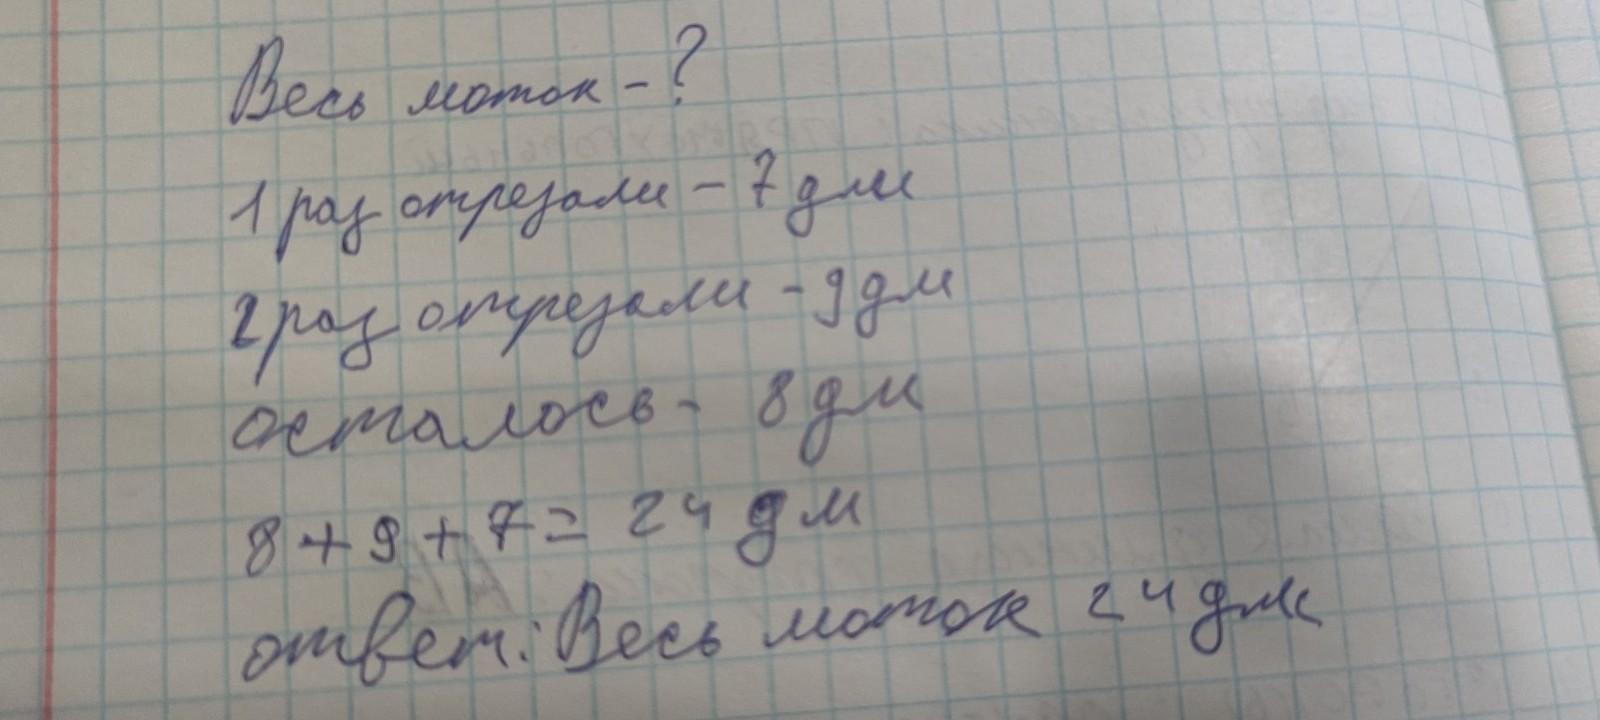 Весь моток - ?
1 раз отрезали - 7 дм
2 раз отрезали - 9 дм
осталось - 8 дм
8 + 9 + 7 = 24 дм
ответ: Весь моток 24 дм